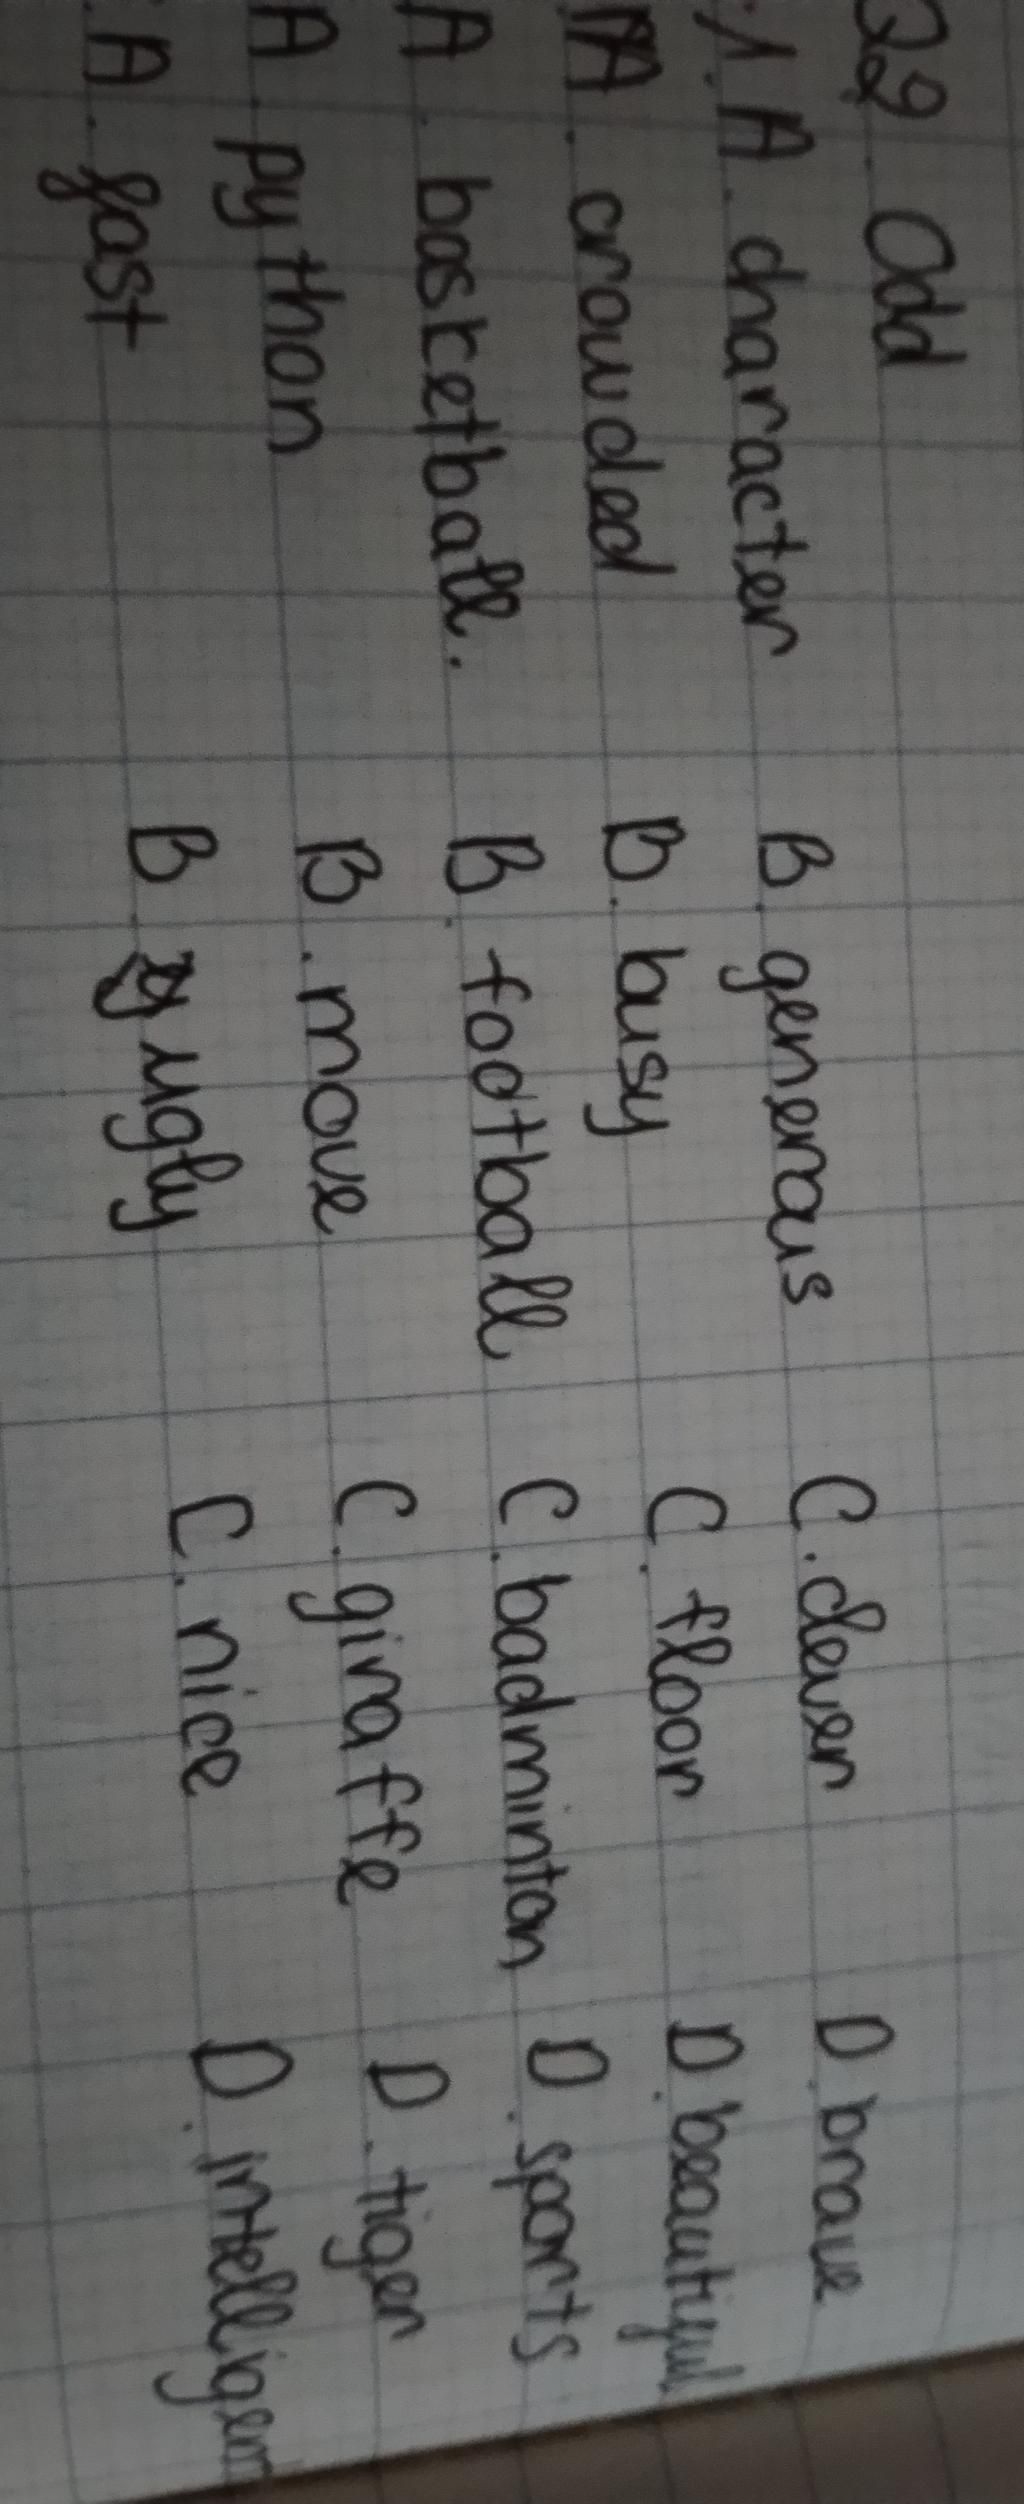 Q2. Odd
1. A. character B. generous C. clever D brave
A. crowded B. busy C. floor D. beautiful
A. basketball. B. football C. badminton D. sports
A. python B. move C. giraffe D. tiger
A. fast B ugly C. nice D. intelligent